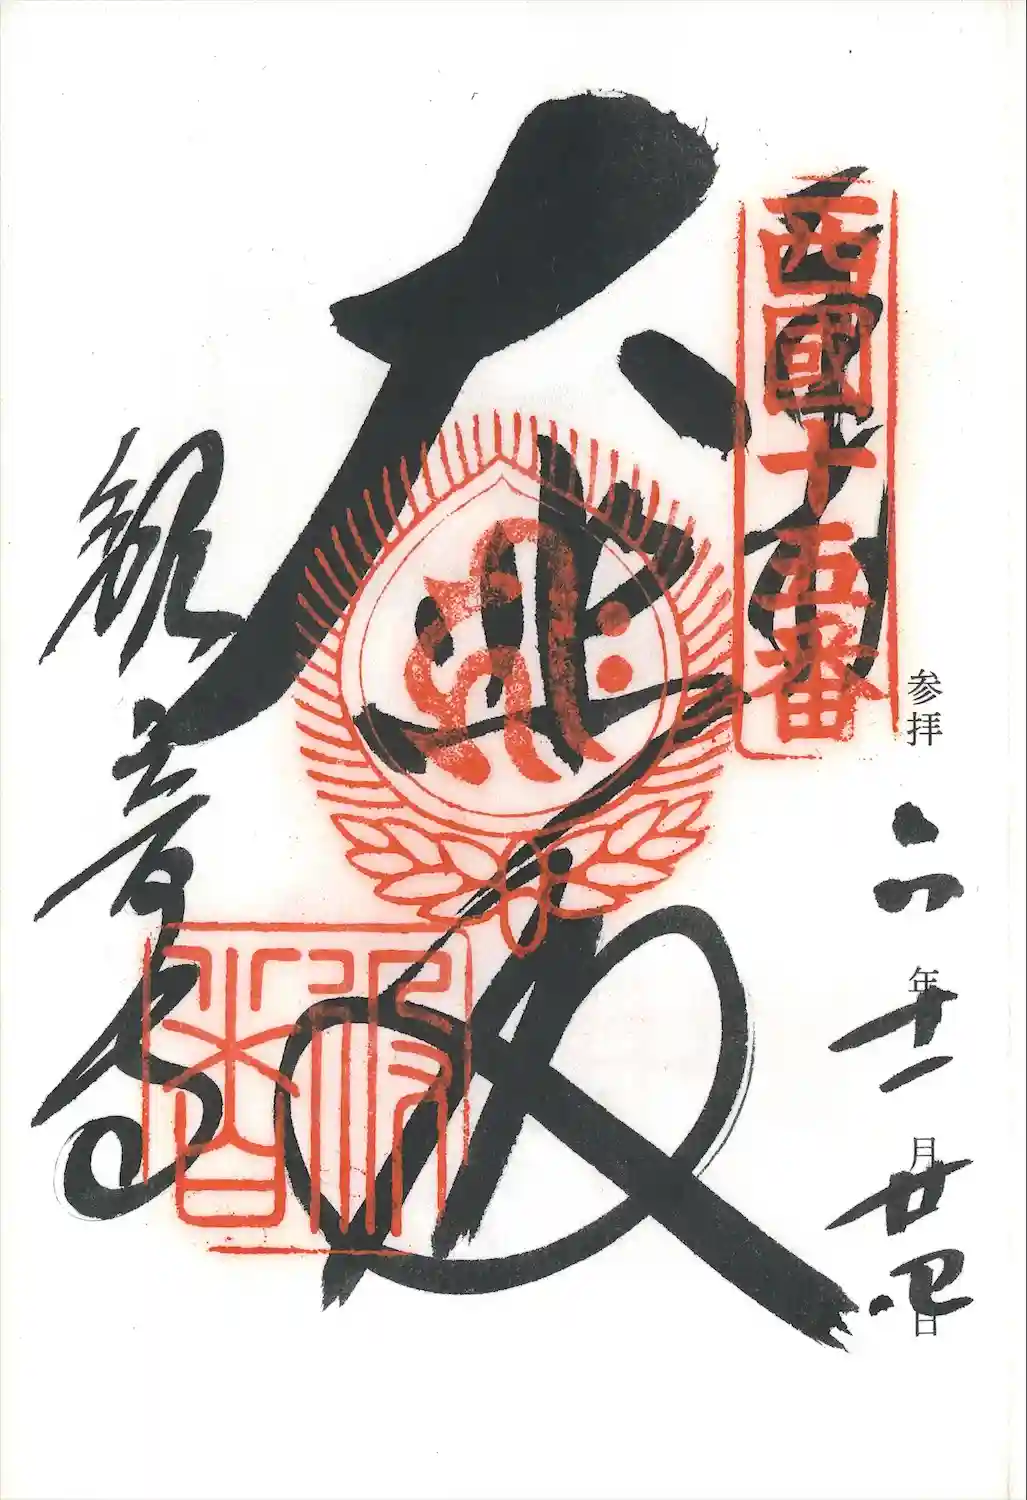 西國十五番
参拝 六年十一月廿四日
大悲殿
観音寺